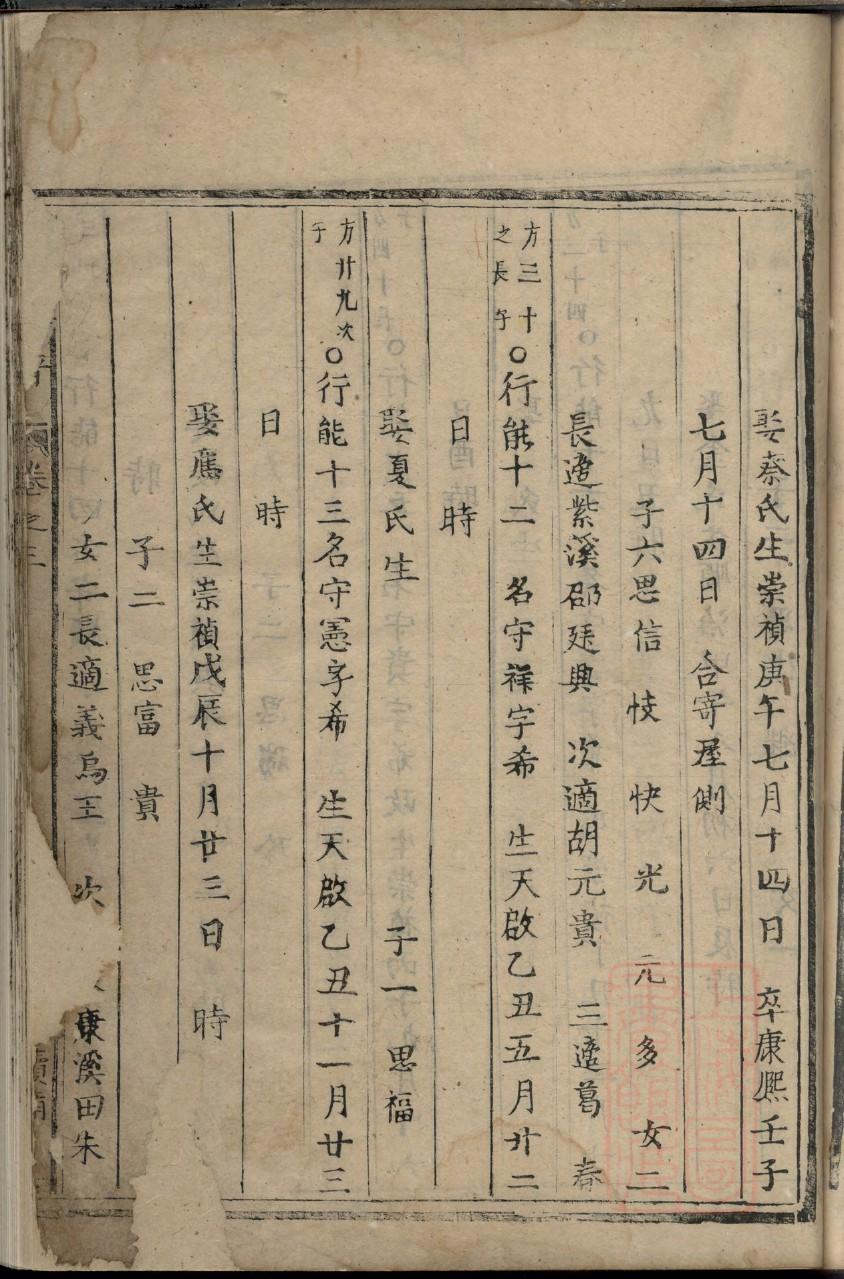 娶蔡氏生崇禎庚午七月十四日 卒康熈壬子
七月十四日 合寄屋側
子六思信 忮 快 光 元 多 女二
長適紫溪邵廷興 次適胡元貴 三適葛 春
方三十之長子○行能十二 名守祥字希 生天啟乙丑五月廿二
日 時
娶夏氏生 子一 思福
方廿九次子○行能十三名守憲字希 生天啟乙丑十一月廿三
日 時
娶應氏生崇禎戊辰十月廿三日 時
子二 思富 貴
女二長適義烏王 次 康溪田朱
卷之三